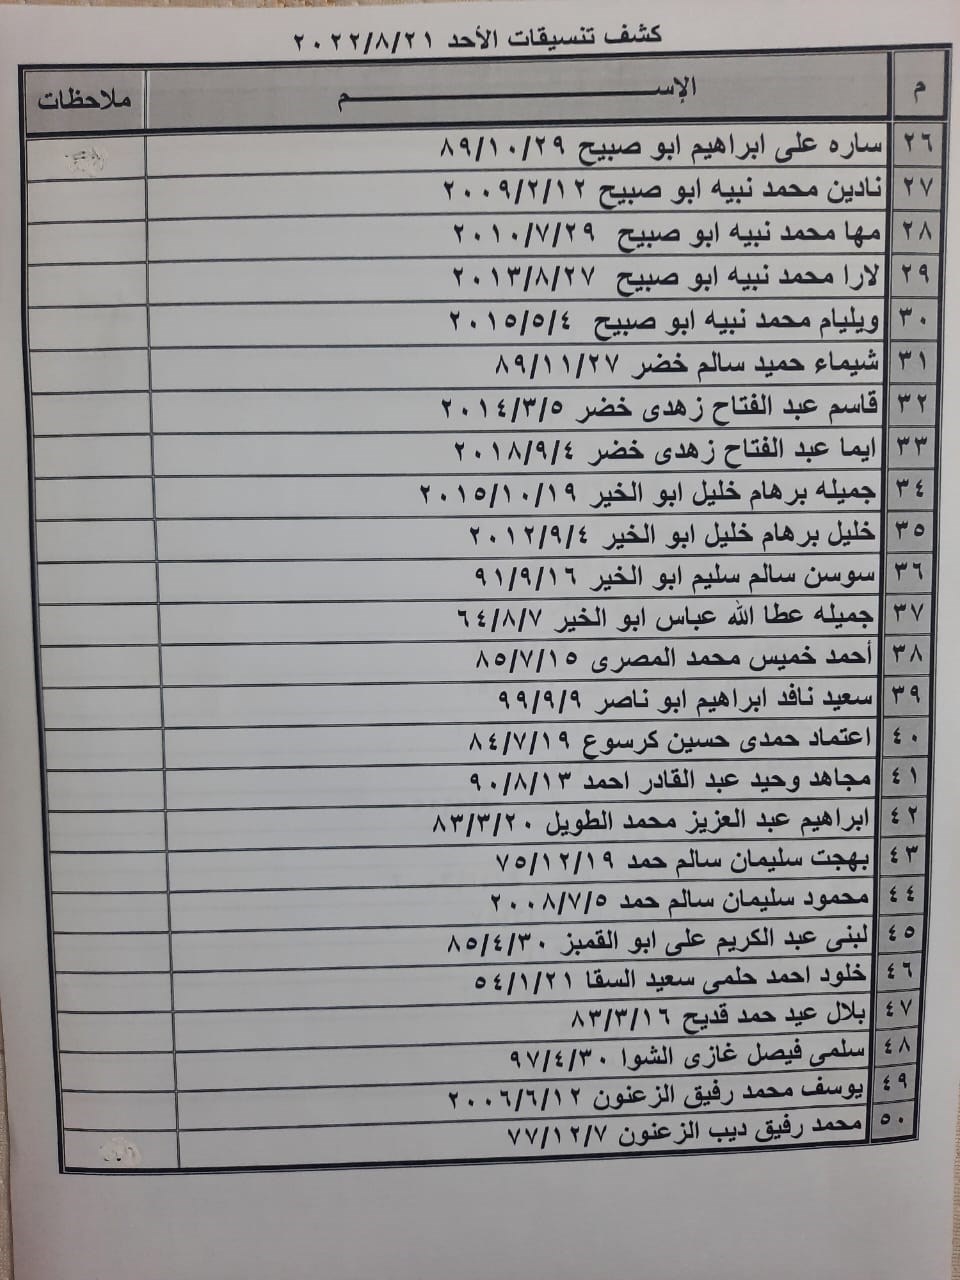 كشف تنسيقات الأحد ٢٠٢٢/٨/٢١
م الإســـــــــــــــــــــــــــــم ملاحظات
٢٦ ساره على ابراهيم ابو صبيح ٨٩/١٠/٢٩
٢٧ نادين محمد نبيه ابو صبيح ٢٠٠٩/٢/١٢
٢٨ مها محمد نبيه ابو صبيح ٢٠١٠/٧/٢٩
٢٩ لارا محمد نبيه ابو صبيح ٢٠١٣/٨/٢٧
٣٠ ويليام محمد نبيه ابو صبيح ٢٠١٥/٥/٤
٣١ شيماء حميد سالم خضر ٨٩/١١/٢٧
٣٢ قاسم عبد الفتاح زهدى خضر ٢٠١٤/٣/٥
٣٣ ايما عبد الفتاح زهدى خضر ٢٠١٨/٩/٤
٣٤ جميله برهام خليل ابو الخير ٢٠١٥/١٠/١٩
٣٥ خليل برهام خليل ابو الخير ٢٠١٢/٩/٤
٣٦ سوسن سالم سليم ابو الخير ٩١/٩/١٦
٣٧ جميله عطا الله عباس ابو الخير ٦٤/٨/٧
٣٨ أحمد خميس محمد المصرى ٨٥/٧/١٥
٣٩ سعيد نافد ابراهيم ابو ناصر ٩٩/٩/٩
٤٠ اعتماد حمدى حسين كرسوع ٨٤/٧/١٩
٤١ مجاهد وحيد عبد القادر احمد ٩٠/٨/١٣
٤٢ ابراهيم عبد العزيز محمد الطويل ٨٣/٣/٢٠
٤٣ بهجت سليمان سالم حمد ٧٥/١٢/١٩
٤٤ محمود سليمان سالم حمد ٢٠٠٨/٧/٥
٤٥ لبنى عبد الكريم على ابو القمبز ٨٥/٤/٣٠
٤٦ خلود احمد حلمى سعيد السقا ٥٤/١/٢١
٤٧ بلال عيد حمد قديح ٨٣/٣/١٦
٤٨ سلمى فيصل غازى الشوا ٩٧/٤/٣٠
٤٩ يوسف محمد رفيق الزعنون ٢٠٠٦/٦/١٢
٥٠ محمد رفيق ديب الزعنون ٧٧/١٢/٧